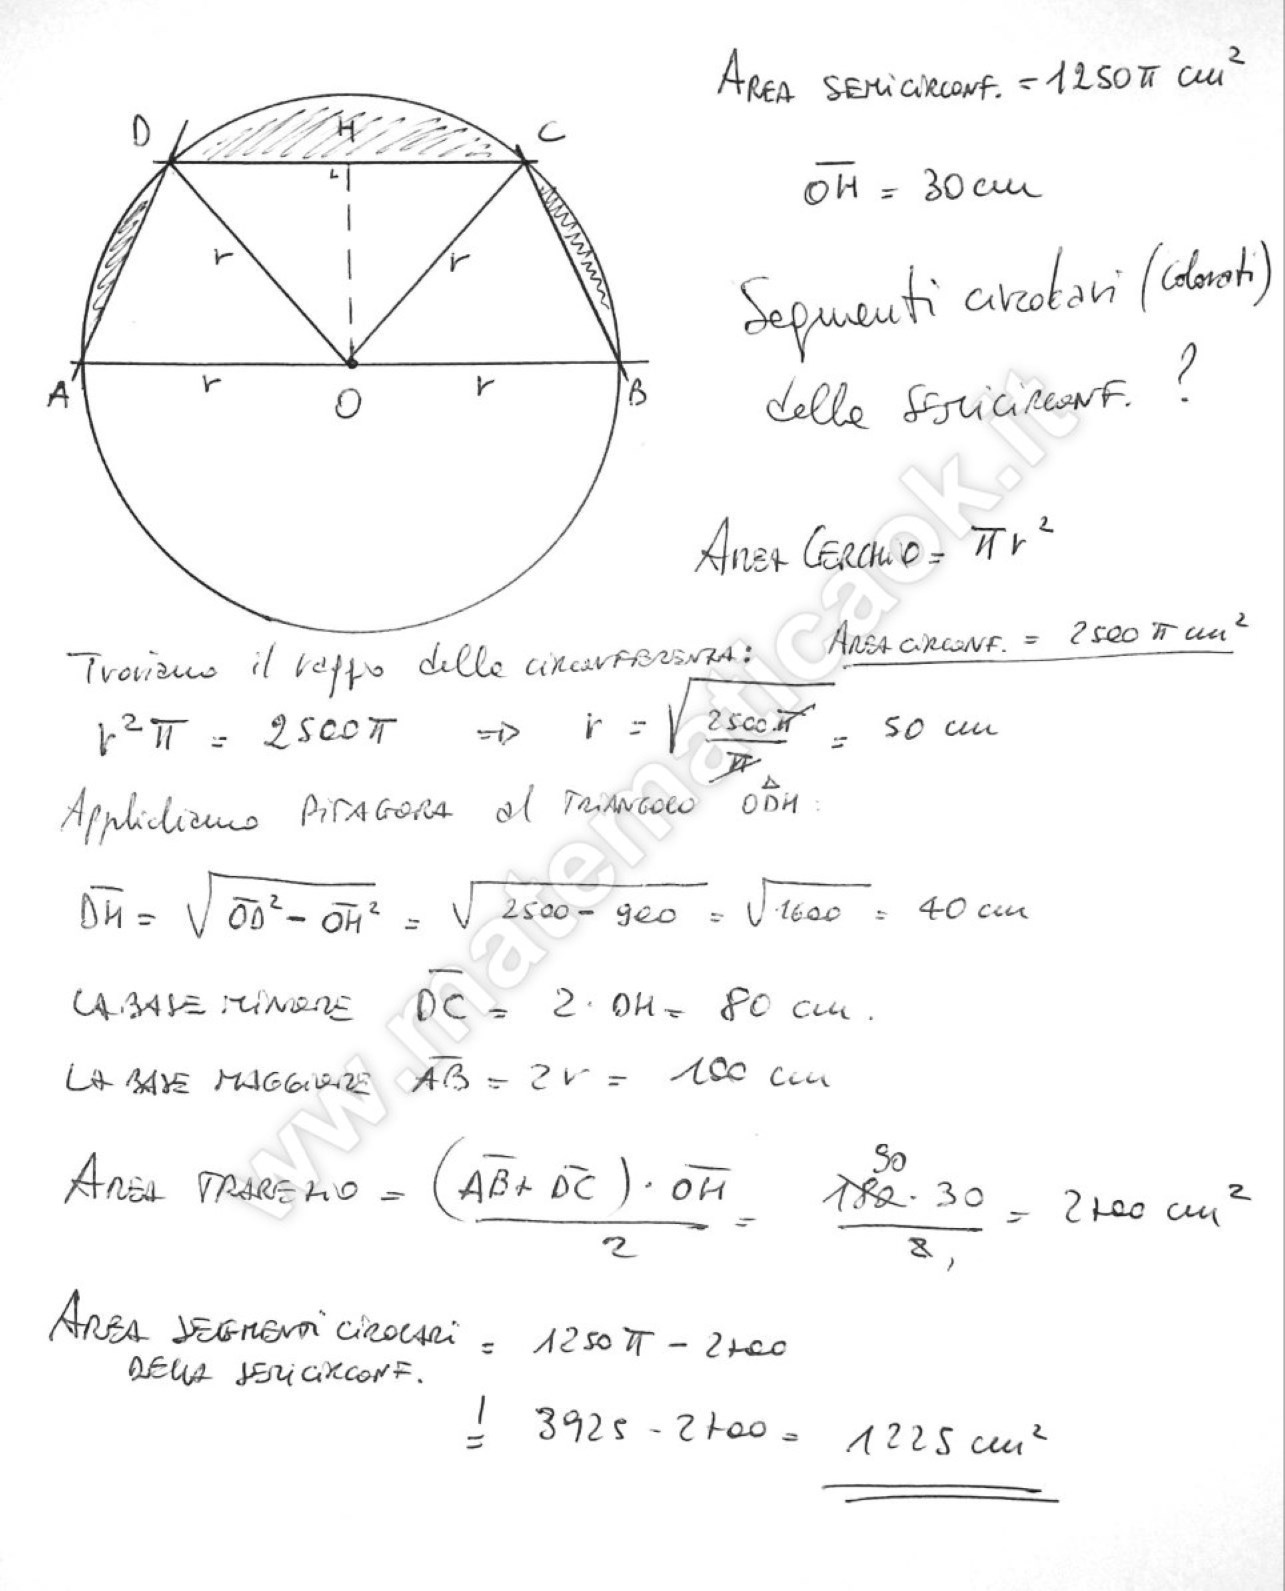 AREA SEMICIRCONF. = 1250π cm²
D H C
OH = 30 cm
r r
Segmenti circolari (colorati)
A r O r B
della SEMICIRCONF. ?
AREA CERCHIO = πr²
AREA CIRCONF. = 2500 π cm²
Troviamo il raggio della CIRCONFERENZA:
r²π = 2500π => r = √2500π/π = 50 cm
Applichiamo PITAGORA al TRIANGOLO ODH:
DH = √OD² - OH² = √2500 - 900 = √1600 = 40 cm
LA BASE MINORE DC = 2 · DH = 80 cm.
LA BASE MAGGIORE AB = 2r = 100 cm
AREA TRAPEZIO = (AB + DC) · OH / 2 = 90 180 · 30 / 2 1 = 2700 cm²
AREA SEGMENTI CIRCOLARI = 1250π - 2700
DELLA SEMICIRCONF.
= 3925 - 2700 = 1225 cm²
www.matematicaok.it